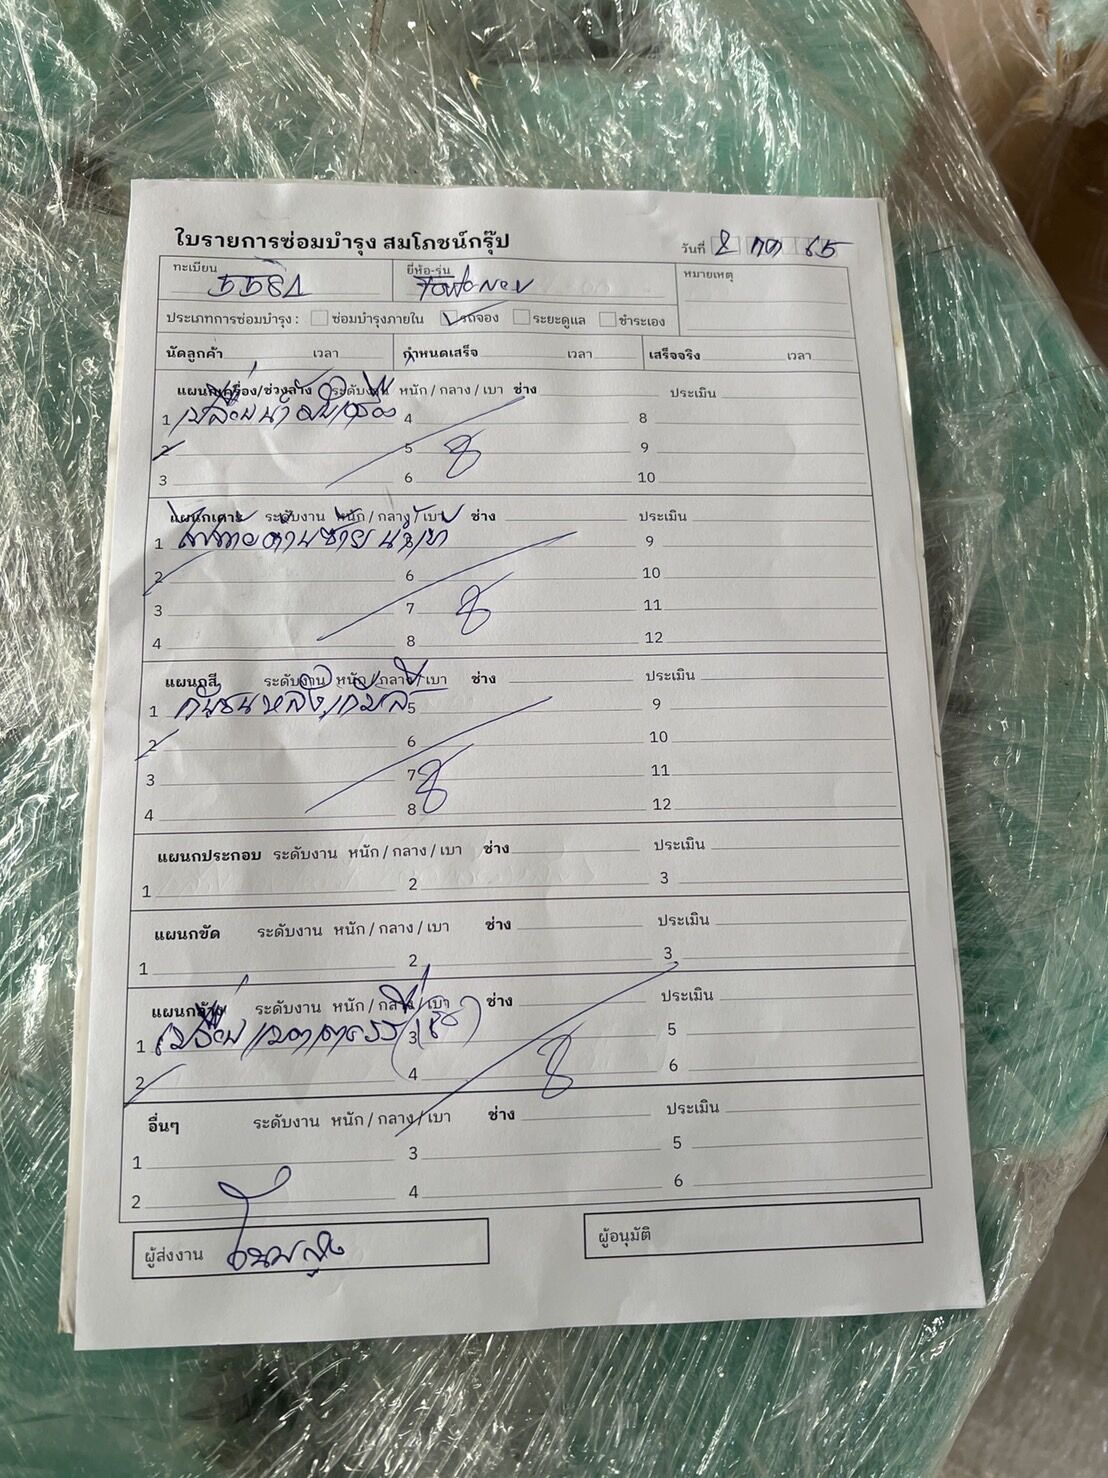 ใบรายการซ่อมบำรุง สมโภชน์กรุ๊ป
วันที่ 8 กค 65
ทะเบียน ยี่ห้อ-รุ่น หมายเหตุ
5581
ประเภทการซ่อมบำรุง : ซ่อมบำรุงภายใน รถจอง ระยะดูแล ชำระเอง
นัดลูกค้า เวลา กำหนดเสร็จ เวลา เสร็จจริง เวลา
แผนกเครื่อง/ช่วงล่าง ระดับงาน หนัก / กลาง / เบา ช่าง ประเมิน
1 เปลี่ยนน้ำมันเครื่อง 4 8
2 5 9
3 6 10
แผนกเคาะ ระดับงาน หนัก / กลาง / เบา ช่าง ประเมิน
1 ด้านซ้าย 9
2 6 10
3 7 11
4 8 12
แผนกสี ระดับงาน หนัก / กลาง / เบา ช่าง ประเมิน
1 กันชนหลัง 5 9
2 6 10
3 7 11
4 8 12
แผนกประกอบ ระดับงาน หนัก / กลาง / เบา ช่าง ประเมิน
1 2 3
แผนกขัด ระดับงาน หนัก / กลาง / เบา ช่าง ประเมิน
1 2 3
แผนกล้าง ระดับงาน หนัก / กลาง / เบา ช่าง ประเมิน
1 เปลี่ยนแบตเตอรรี่ 3 5
2 4 6
อื่นๆ ระดับงาน หนัก / กลาง / เบา ช่าง ประเมิน
1 3 5
2 4 6
ผู้ส่งงาน ผู้อนุมัติ